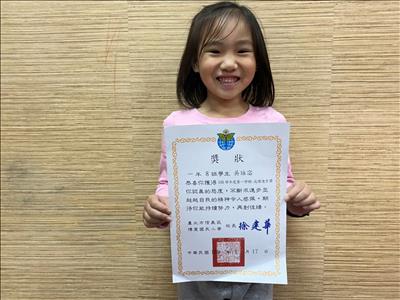 獎狀
一年 8 班學生 吳
恭喜你獲得
你認真的態度，不斷求進步並
超越自我的精神令人感佩，期
待你能持續努力，再創佳績。
臺北市信義區
博愛國民小學 校長 徐建華
中華民國 月 17 日